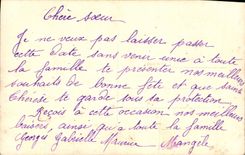 Chère sœur
Je ne veux pas laisser passer
cette date sans venir à toute
la famille te présenter nos meilleurs
souhaits de bonne fête et que sainte
Thérèse te garde sous sa protection
Reçois à cette occasion nos meilleurs
baisers, ainsi qu'a toute la famille
Georges Gabrielle Maurice Mangele